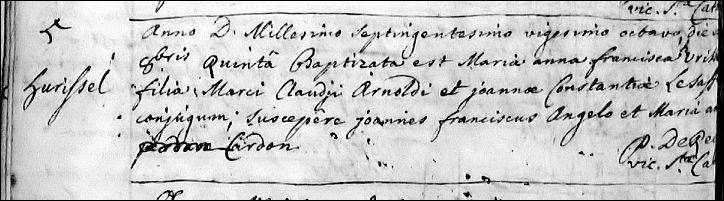 vic. S.ta Cath
5
Anno D. Millesimo septingentesimo vigesimo octavo die
8bris Quinta Baptizata est Maria anna francisca
Hurissel
filia Marci Claudii Arnoldi et joannæ Constantiæ Le
conjugum; suscepere joannes franciscus Angelo et Maria
Cardon
P. De
vic. S.tæ Ca